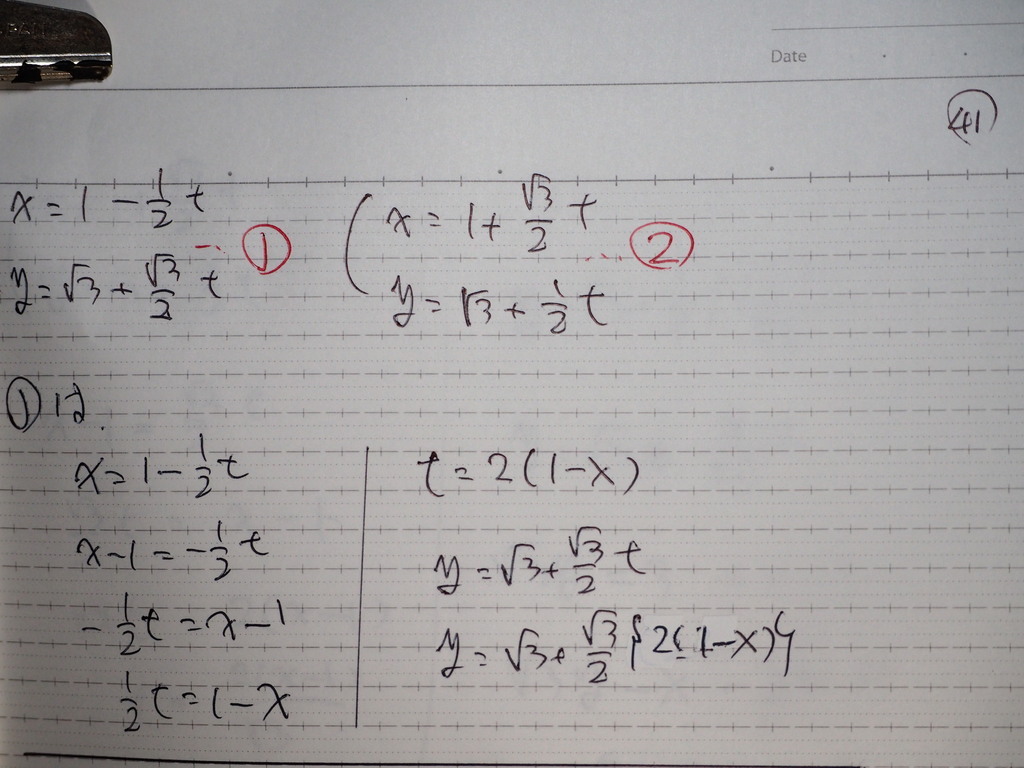 Date
41
x = 1 - 1/2 t
y = √3 + √3/2 t ... ①
x = 1 + √3/2 t
y = √3 + 1/2 t ... ②
①は
x = 1 - 1/2 t
x - 1 = - 1/2 t
- 1/2 t = x - 1
1/2 t = 1 - x
t = 2(1-x)
y = √3 + √3/2 t
y = √3 + √3/2 {2(1-x)}